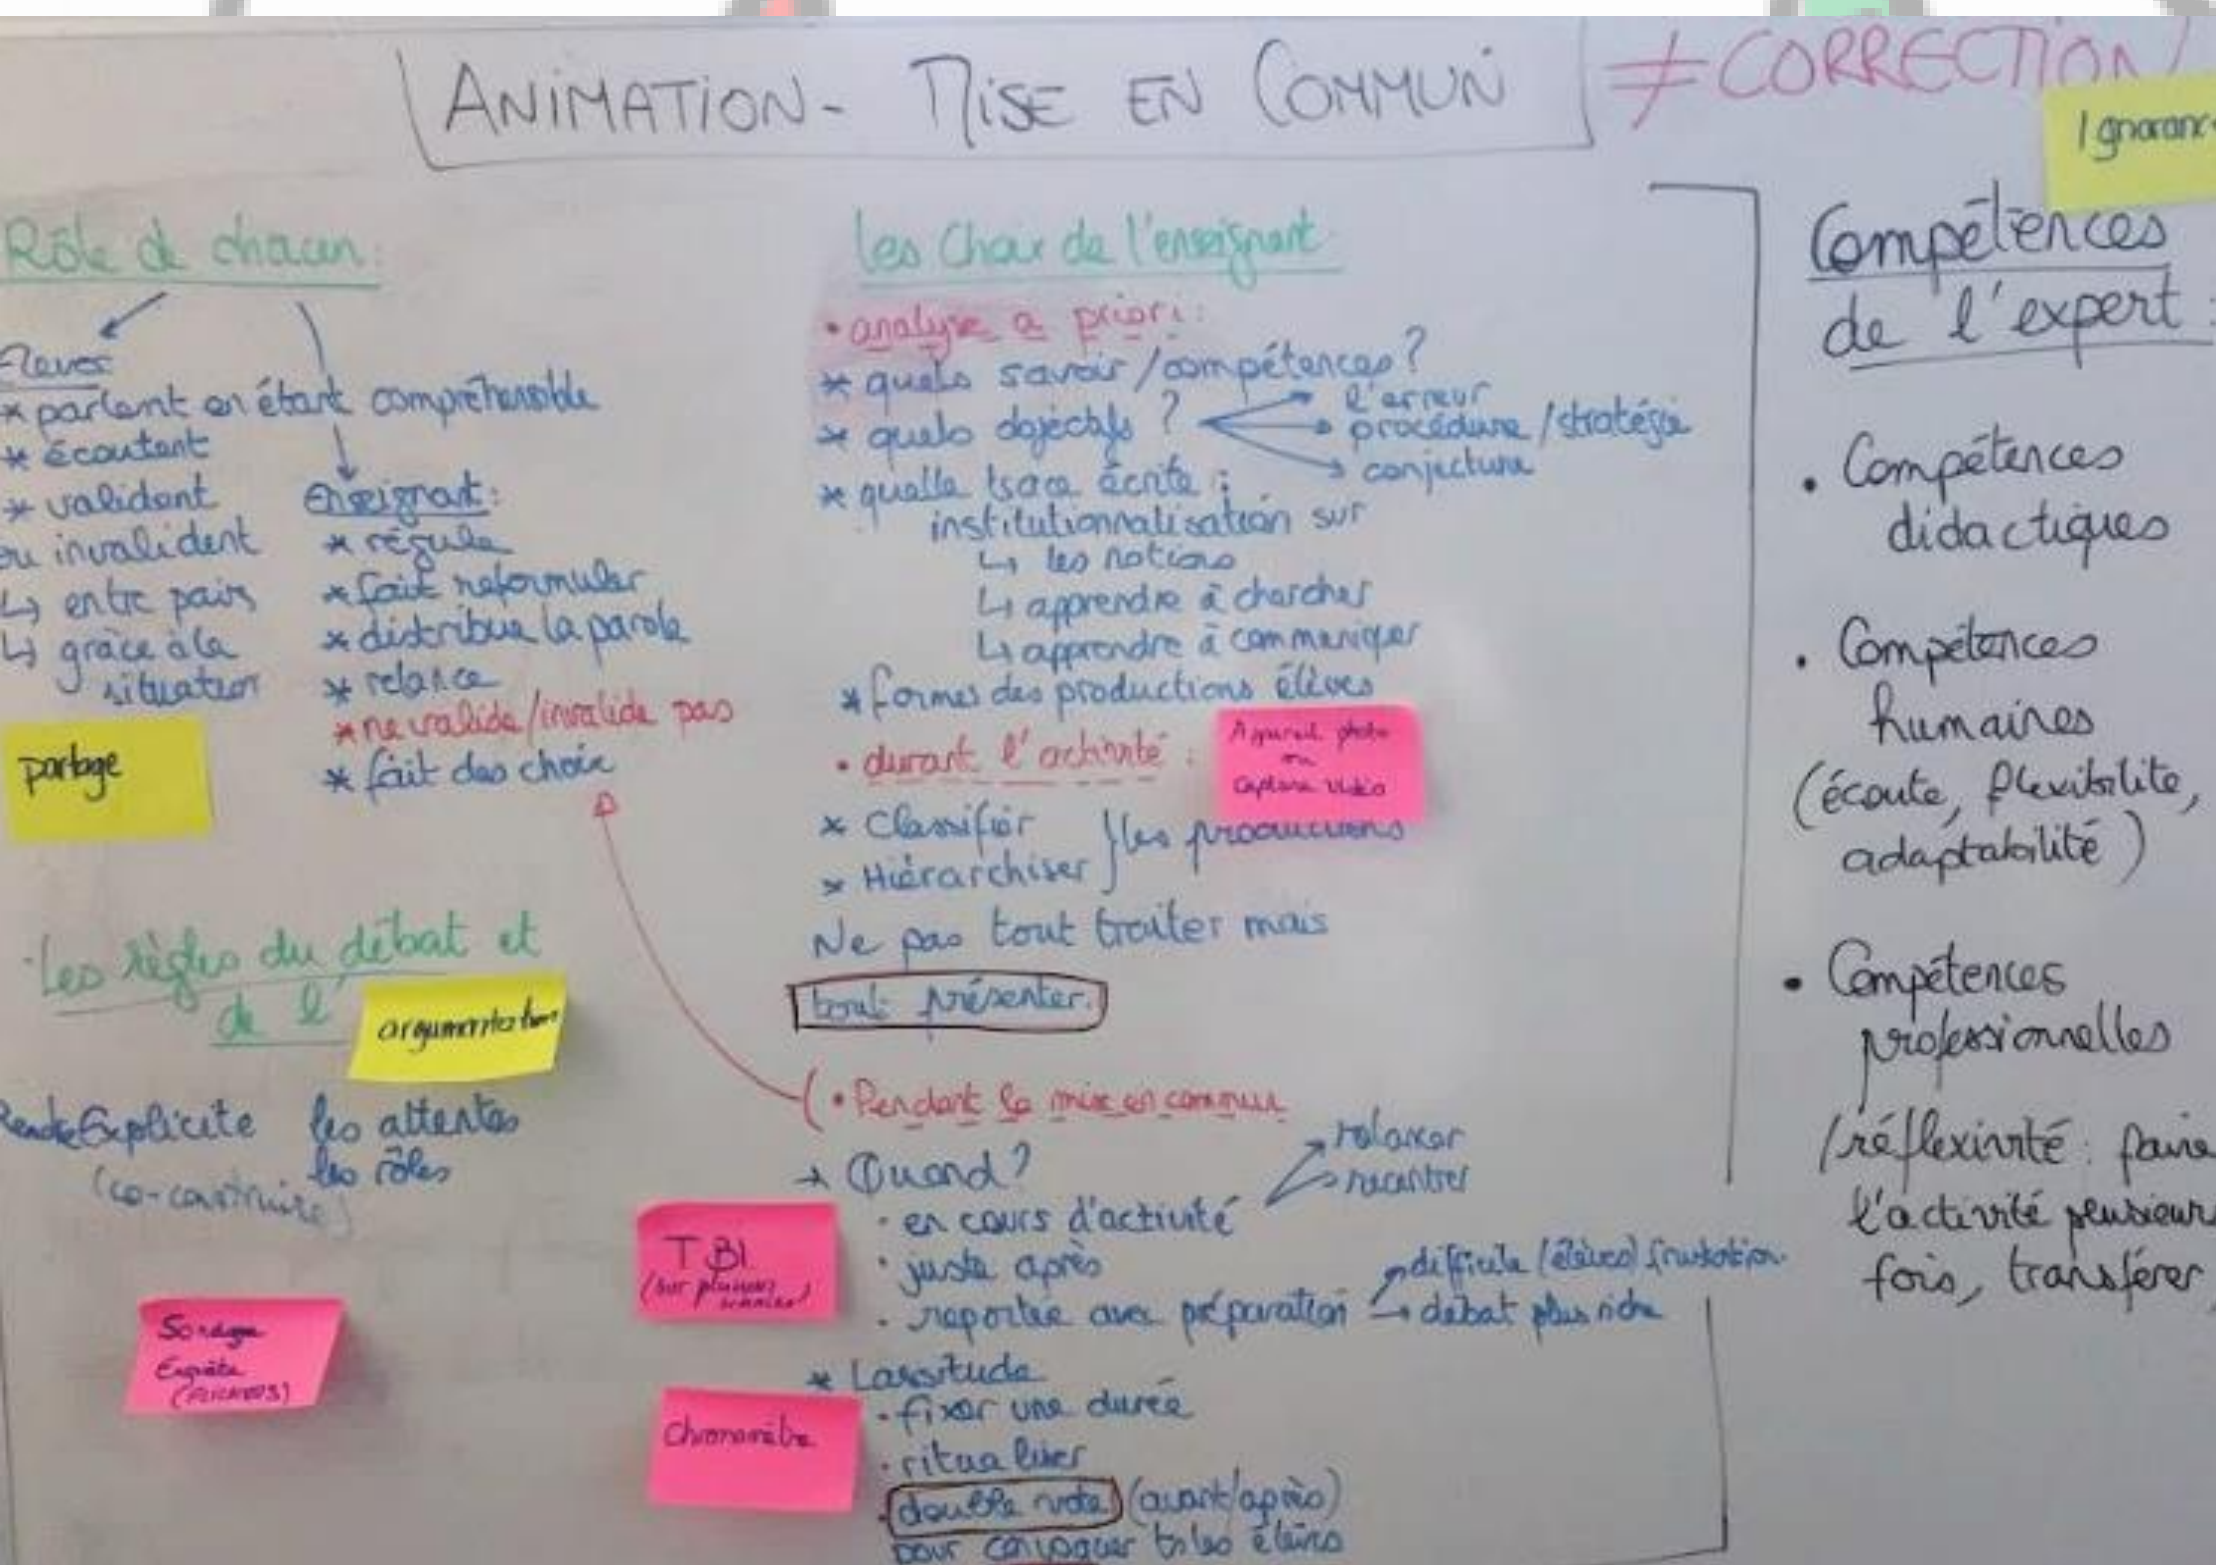 ANIMATION - MISE EN COMMUN
≠ CORRECTION
Rôle de chacun :
Élèves
* parlent en étant compréhensible
* écoutent
* valident
ou invalident
↳ entre pairs
↳ grâce à la
situation
partage
Enseignant :
* régule
* fait reformuler
* distribue la parole
* relance
* ne valide/invalide pas
* fait des choix
. Les règles du débat et
de l'
argumentation
Rendre Explicite les attentes
les rôles
(co-construire)
Sondage
Enquête
les Choix de l'enseignant
• analyse a priori :
* quels savoir/compétences ?
* quels objectifs ?
l'erreur
procédure/stratégie
conjecture
* quelle trace écrite :
institutionnalisation sur
↳ les notions
↳ apprendre à chercher
↳ apprendre à communiquer
* formes des productions élèves
• durant l'activité :
Appareil photo
ou
Capture vidéo
* Classifier
* Hiérarchiser
} les productions
Ne pas tout traiter mais
tout présenter.
• Pendant la mise en commun
→ Quand ?
relancer
recentrer
· en cours d'activité
· juste après
· reportée avec préparation
difficile (élèves) frustration
→ débat plus riche
TBI
(sur plusieurs
* Lassitude
· fixer une durée
· ritualiser
. double vote (avant/après)
pour les élèves
Chronomètre
Compétences
de l'expert :
• Compétences
didactiques
• Compétences
humaines
(écoute, flexibilité,
adaptabilité)
• Compétences
professionnelles
(réflexivité : faire
l'activité plusieurs
fois, transférer,